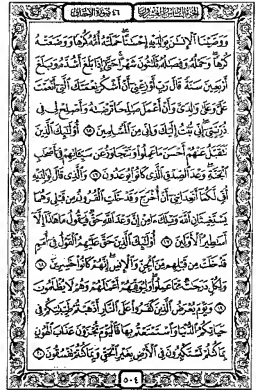 الجزء السادس والعشرون ٤٦ سورة الأحقاف
ووصينا الإنسان بوالديه إحسانا حملته أمه كرها ووضعته
كرها وحمله وفصاله ثلاثون شهرا حتى إذا بلغ أشده وبلغ
أربعين سنة قال رب أوزعني أن أشكر نعمتك التي أنعمت
علي وعلى والدي وأن أعمل صالحا ترضاه وأصلح لي في
ذريتي إني تبت إليك وإني من المسلمين ١٥ أولئك الذين
نتقبل عنهم أحسن ما عملوا ونتجاوز عن سيئاتهم في أصحاب
الجنة وعد الصدق الذي كانوا يوعدون ١٦ والذي قال لوالديه
أف لكما أتعدانني أن أخرج وقد خلت القرون من قبلي وهما
يستغيثان الله ويلك آمن إن وعد الله حق فيقول ما هذا إلا
أساطير الأولين ١٧ أولئك الذين حق عليهم القول في أمم
قد خلت من قبلهم من الجن والإنس إنهم كانوا خاسرين ١٨
ولكل درجات مما عملوا وليوفيهم أعمالهم وهم لا يظلمون
١٩ ويوم يعرض الذين كفروا على النار أذهبتم طيباتكم في
حياتكم الدنيا واستمتعتم بها فاليوم تجزون عذاب الهون
بما كنتم تستكبرون في الأرض بغير الحق وبما كنتم تفسقون ٢٠
٥٠٤